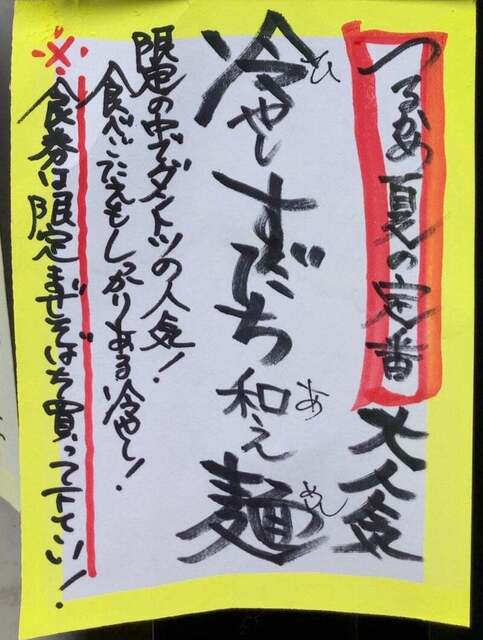 つるめ夏の定番 大人気
冷やしすだち和え麺
ひ
あ
めん
限定の中でダントツの人気!
食べごたえもしっかりある冷やし!
※食券は限定まぜそばを買って下さい!